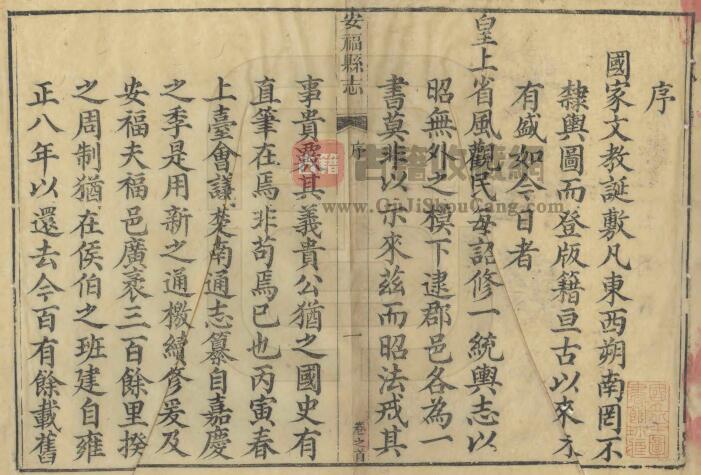 序
國家文教誕敷凡東西朔南罔不
隸輿圖而登版籍亘古以來未
有盛如今日者
皇上省風觀民毋詔修一統輿志以
昭無外之模下逮郡邑各為一
書莫非以示來茲而昭法戒其
安福縣志
序
一
卷之首
事貴覈其義貴公猶之國史有
直筆在焉非苟焉已也丙寅春
上臺會議英南通志纂自嘉慶
之季是用新之通檄續修爰及
安福夫福邑廣袤三百餘里揆
之周制猶在侯伯之班建自雍
正八年以還去今百有餘載舊
古籍收藏網
www.GuJiShouCang.com